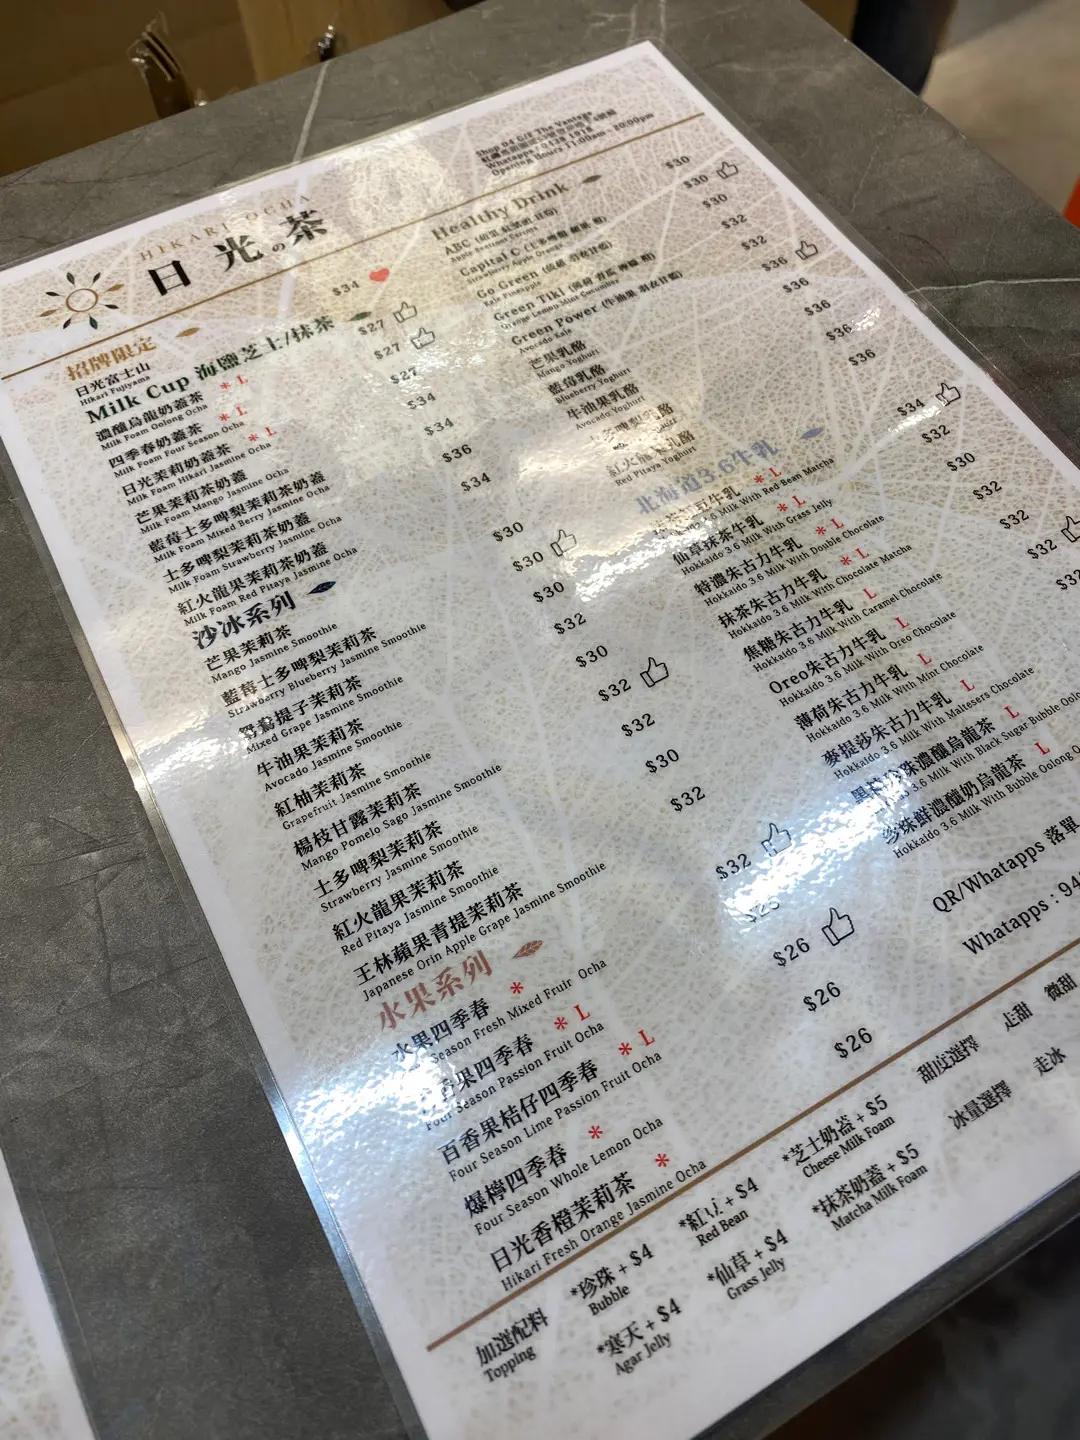 HIKARI OCHA
日光の茶
Shop 04 G/F The Vantage
Opening Hours 11:00am - 10:00pm
招牌限定
日光富士山 $34
Hikari Fujiyama
Milk Cup 海鹽芝士/抹茶
濃釀烏龍奶蓋茶 * L $27
Milk Foam Oolong Ocha
四季春奶蓋茶 * L $27
Milk Foam Four Season Ocha
日光茉莉奶蓋茶 * L $27
Milk Foam Hikari Jasmine Ocha
芒果茉莉茶奶蓋 $34
Milk Foam Mango Jasmine Ocha
藍莓士多啤梨茉莉茶奶蓋 $34
Milk Foam Mixed Berry Jasmine Ocha
士多啤梨茉莉茶奶蓋 $36
Milk Foam Strawberry Jasmine Ocha
紅火龍果茉莉茶奶蓋 $34
Milk Foam Red Pitaya Jasmine Ocha
沙冰系列
芒果茉莉茶 $30
Mango Jasmine Smoothie
藍莓士多啤梨茉莉茶 $30
Strawberry Blueberry Jasmine Smoothie
鴛鴦提子茉莉茶 $30
Mixed Grape Jasmine Smoothie
牛油果茉莉茶 $32
Avocado Jasmine Smoothie
紅柚茉莉茶 $30
Grapefruit Jasmine Smoothie
楊枝甘露茉莉茶 $32
Mango Pomelo Sago Jasmine Smoothie
士多啤梨茉莉茶 $32
Strawberry Jasmine Smoothie
紅火龍果茉莉茶 $30
Red Pitaya Jasmine Smoothie
王林蘋果青提茉莉茶 $32
Japanese Orin Apple Grape Jasmine Smoothie
水果系列
水果四季春 * $32
Season Fresh Mixed Fruir Ocha
果四季春 * L
Four Season Passion Fruit Ocha
百香果桔仔四季春 * L $26
Four Season Lime Passion Fruit Ocha
爆檸四季春 * $26
Four Season Whole Lemon Ocha
日光香橙茉莉茶 * $26
Hikari Fresh Orange Jasmine Ocha
Healthy Drink
ABC $30
Capital C $30
Strawberry Apple Orange
Go Green $30
Kale Pineapple
Green Tiki $32
Orange Lemon Mint Cucumber
Green Power $32
Avocado Kale
芒果乳酪 $36
Mango Yoghurt
藍莓乳酪 $36
Blueberry Yoghurt
牛油果乳酪 $36
Avocado Yoghurt
$36
紅火龍果乳酪
Red Pitaya Yoghurt
北海道3.6牛乳
豆牛乳 * L $34
3.6 Milk With Red Bean Matcha
仙草抹茶牛乳 * L $32
Hokkaido 3.6 Milk With Grass Jelly
特濃朱古力牛乳 * L $30
Hokkaido 3.6 Milk With Double Chocolate
抹茶朱古力牛乳 * L $32
Hokkaido 3.6 Milk With Chocolate Matcha
焦糖朱古力牛乳 L $32
Hokkaido 3.6 Milk With Caramel Chocolate
Oreo朱古力牛乳 L $32
Hokkaido 3.6 Milk With Oreo Chocolate
薄荷朱古力牛乳 L
Hokkaido 3.6 Milk With Mint Chocolate
麥提莎朱古力牛乳 L
Hokkaido 3.6 Milk With Maltesers Chocolate
濃釀烏龍茶 L
3.6 Milk With Black Sugar Bubble Oolo
珠鮮濃釀奶烏龍茶 L
Hokkaido 3.6 Milk With Bubble Oolong O
QR/Whatapps 落單
Whatapps : 94
加選配料
Topping
*珍珠 + $4
Bubble
*寒天 + $4
Agar Jelly
*紅豆 + $4
Red Bean
*仙草 + $4
Grass Jelly
*芝士奶蓋 + $5
Cheese Milk Foam
*抹茶奶蓋 + $5
Matcha Milk Foam
甜度選擇 走甜 微甜
冰量選擇 走冰